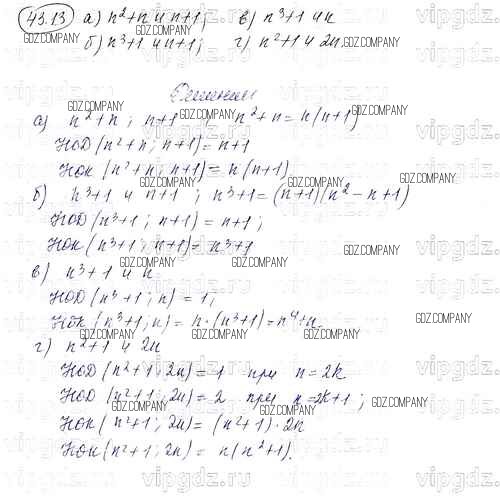 43.13 а) n²+n и n+1; в) n³+1 и n
б) n³+1 и n+1; г) n²+1 и 2n.
Решение
а) n²+n ; n+1 ; n²+n = n(n+1)
НОД (n²+n; n+1) = n+1
НОК (n²+n; n+1) = n(n+1)
б) n³+1 и n+1 ; n³+1 = (n+1)(n²-n+1)
НОД (n³+1; n+1) = n+1;
НОК (n³+1; n+1) = n³+1
в) n³+1 и n
НОД (n³+1; n) = 1;
НОК (n³+1; n) = n·(n³+1) = n⁴+n.
г) n²+1 и 2n
НОД (n²+1; 2n) = 1 при n=2k
НОД (n²+1; 2n) = 2 при n=2k+1;
НОК (n²+1; 2n) = (n²+1)·2n
НОК (n²+1; 2n) = n(n²+1).